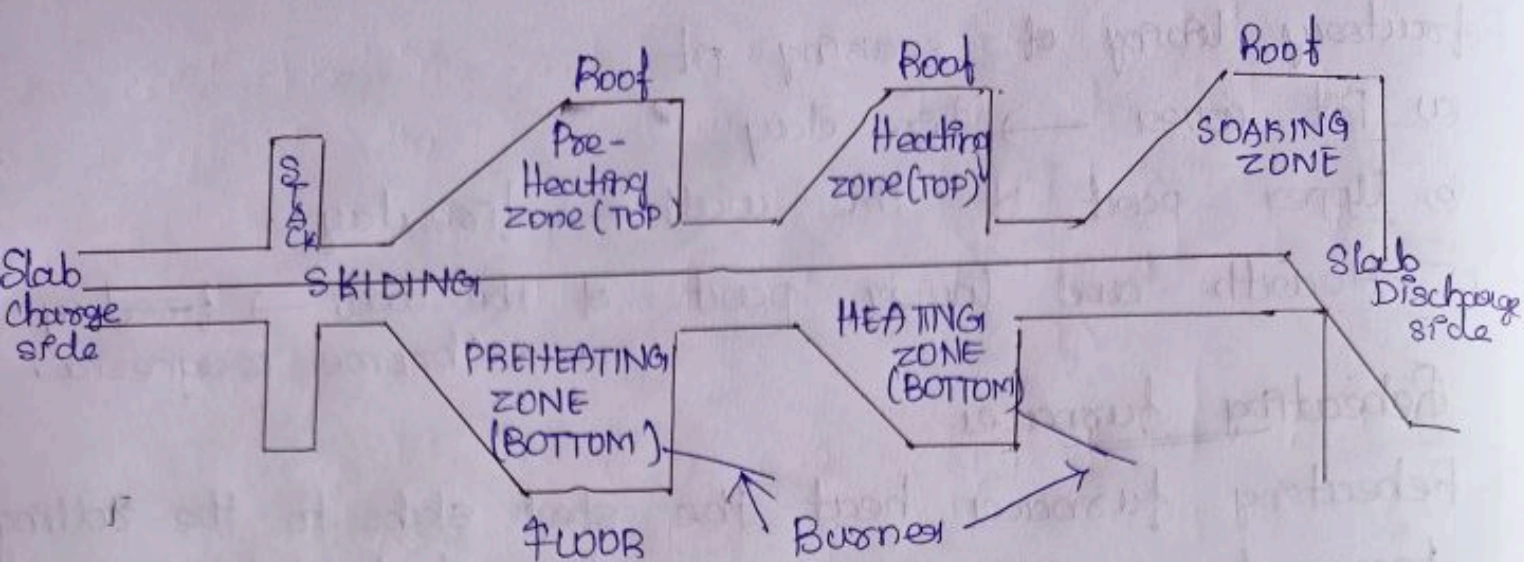 Roof
Roof
Roof
Pre-
Heating
zone (TOP)
Heating
zone (TOP)
SOAKING
ZONE
STACK
Slab
charge
side
SKIDING
Slab
Discharge
side
PREHEATING
ZONE
(BOTTOM)
HEATING
ZONE
(BOTTOM)
FLOOR
Burner